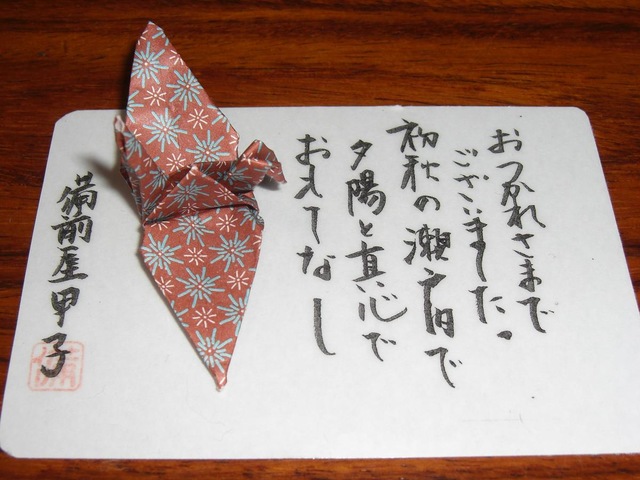 おつかれさまで
ございました。
初秋の瀬戸田で
夕陽と真心で
おもてなし
備前屋甲子
備